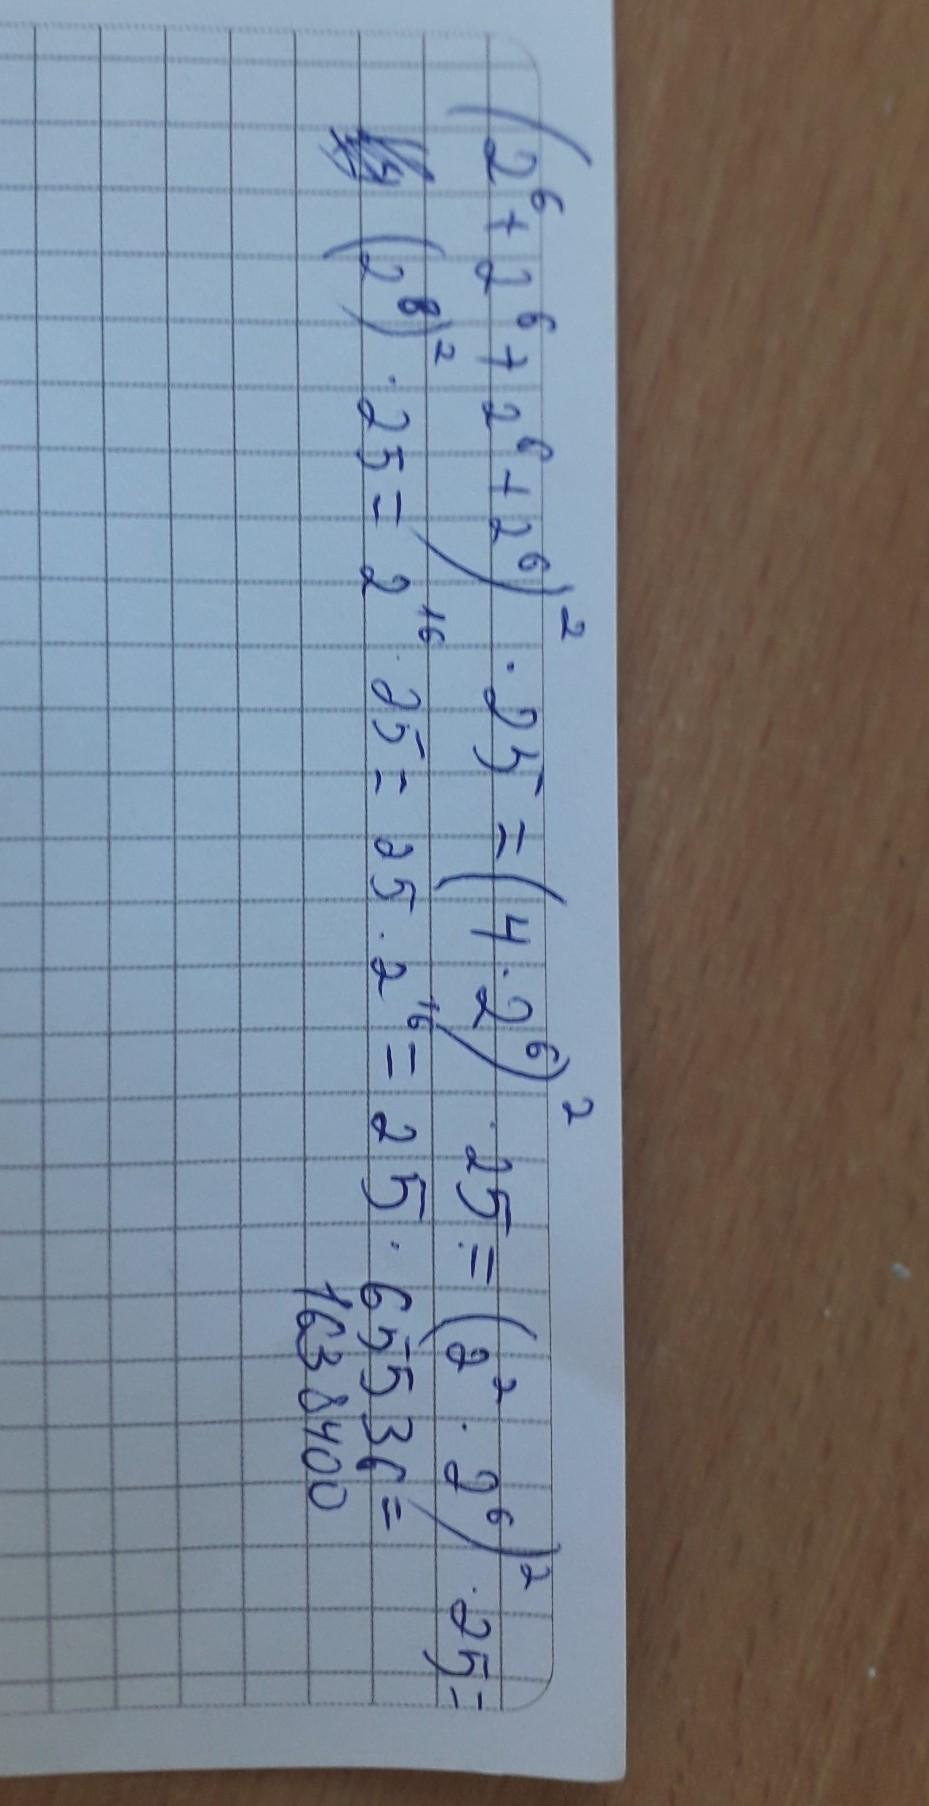 (2⁶+2⁶+2⁶+2⁶)² · 25 = (4·2⁶)² · 25 = (2² · 2⁶)² · 25 =
(2⁸)² · 25 = 2¹⁶ · 25 = 25 · 2¹⁶ = 25 · 65536 =
1638400